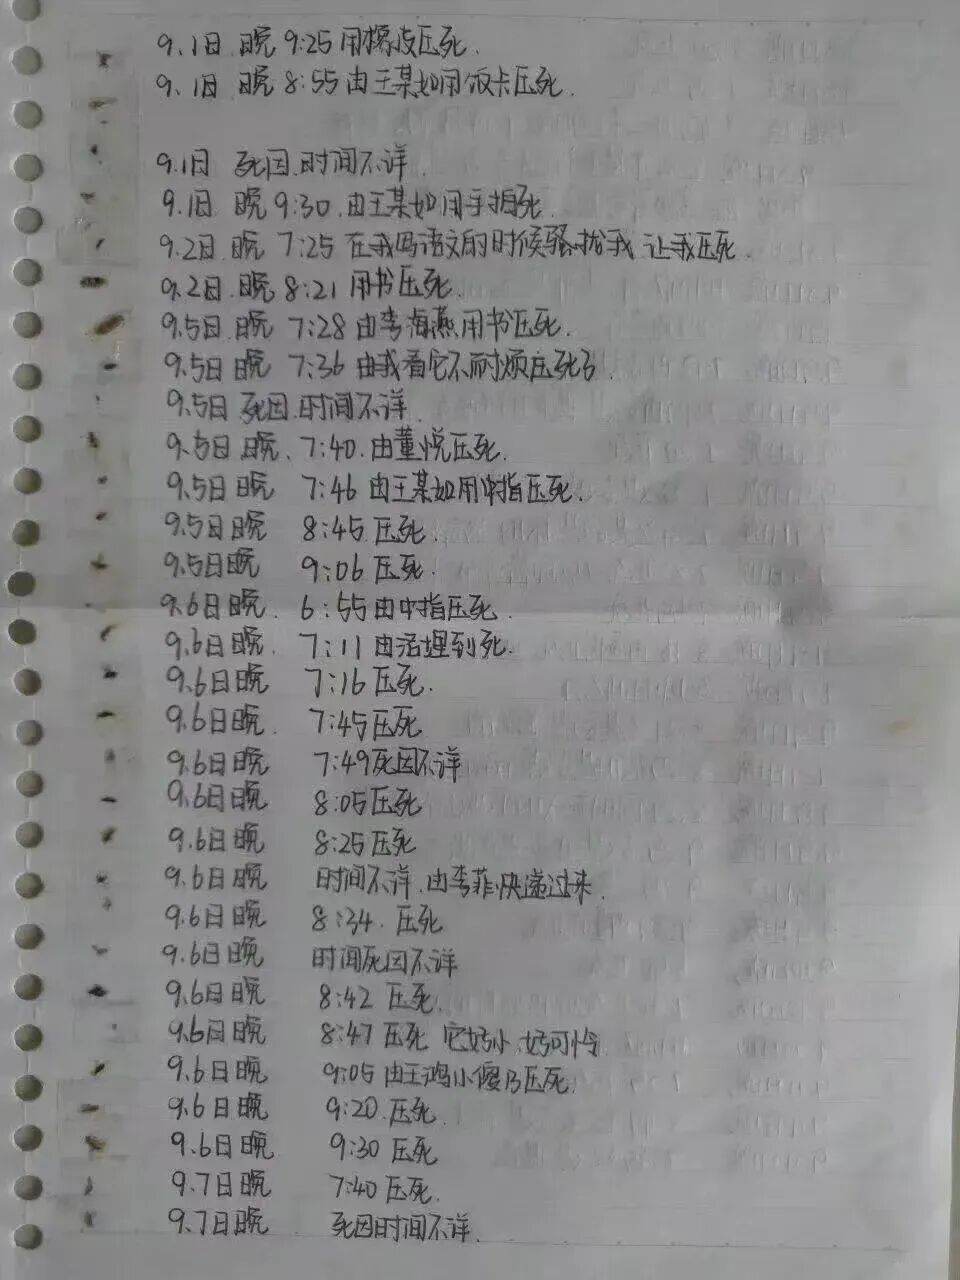 9.1日.晚9:25用橡皮压死.
9.1日 晚8:55由王某如用饭卡压死.
9.1日 死因.时间不详.
9.1日 晚9:30.由王某如用手指死.
9.2日.晚 7:25 在我写语文的时候骚扰我.让我压死.
9.2日.晚8:21 用书压死.
9.5日.晚 7:28由李海燕用书压死.
9.5日.晚 7:36 由我看它不耐烦压死了.
9.5日 死因.时间不详.
9.5日晚. 7:40.由董悦压死.
9.5日晚 7:46由王某如用中指压死.
9.5日晚 8:45.压死.
9.5日晚 9:06压死.
9.6日晚. 6:55由中指压死.
9.6日晚. 7:11由活埋到死.
9.6日晚 7:16压死.
9.6日晚. 7:45压死
9.6日晚 7:49死因不详
9.6日晚 8:05压死
9.6日晚 8:25压死
9.6日晚 时间不详.由李菲快递过来.
9.6日晚 8:34.压死
9.6日晚 时间死因不详
9.6日晚 8:42 压死.
9.6日晚 8:47压死 它好小.好可怜
9.6日晚 9:05由王鸿小傻B压死.
9.6日晚 9:20.压死.
9.6日晚 9:30压死
9.7日晚 7:40压死.
9.7日晚 死因时间不详.